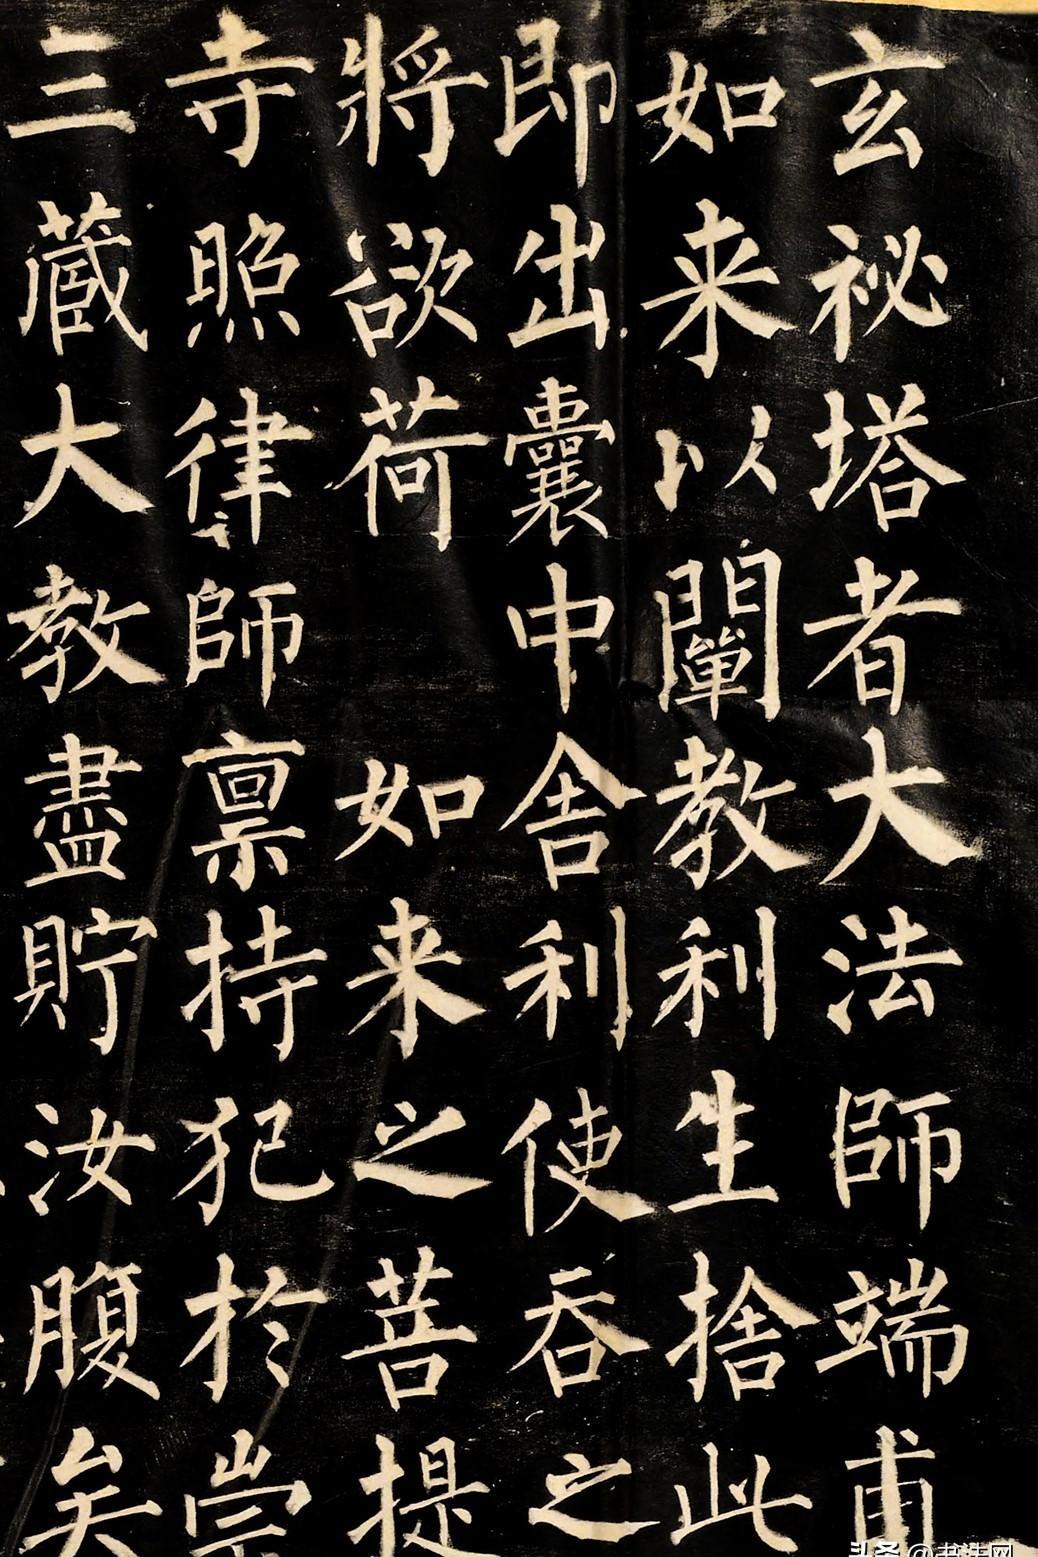 玄秘塔者大法師端甫
如来以闡教利生捨此
即出囊中舎利使吞之
將欲荷 如来之菩提
寺照律師禀持犯於崇
三藏大教盡貯汝腹矣
头条@书法网